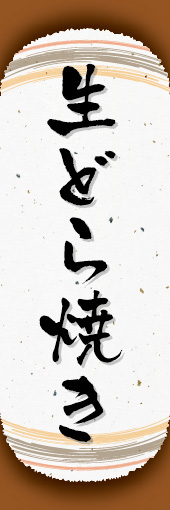 生どら焼き